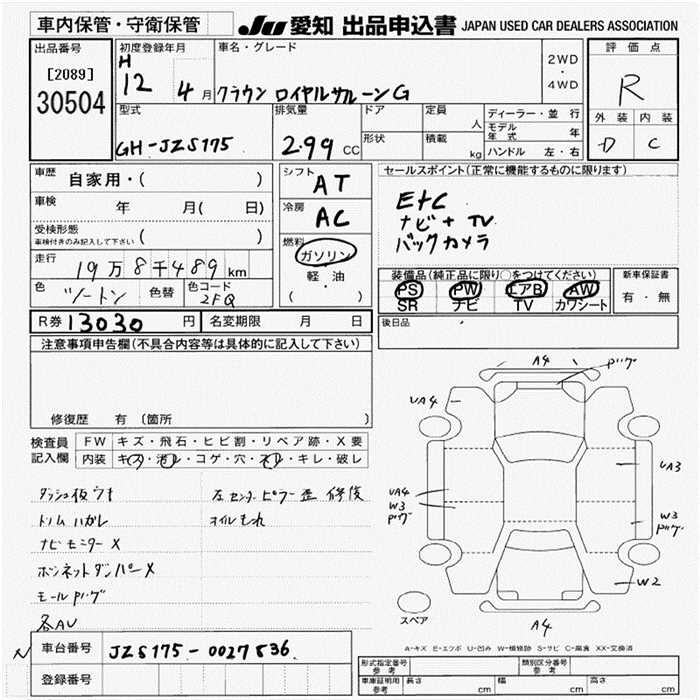 車内保管・守衛保管
JU 愛知 出品申込書 JAPAN USED CAR DEALERS ASSOCIATION
出品番号
[2089]
30504
初度登録年月
H
12 4 月
車名・グレード
クラウン ロイヤルサルーンG
2WD
・
4WD
評価点
R
外装 内装
D C
型式
GH-JZS175
排気量
2.99 CC
ドア
形状
定員
人
積載
kg
ディーラー・並行
モデル年式 年
ハンドル 左・右
車歴 自家用・( )
車検 年 月( 日)
受検形態
車検付きのみ記入して下さい ( )
走行
19万8千489km
色 ツートン 色替 色コード
2FQ
シフト
AT
冷房
AC
燃料
ガソリン
・
軽・油
( )
セールスポイント(正常に機能するものに限ります)
EtC
ナビ+TV
バックカメラ
装備品(純正品に限り○をつけてください)
PS PW エアB AW
SR ナビ TV カワシート
新車保証書
有・無
R券 13030 円 名変期限 月 日
後日品
注意事項申告欄(不具合内容等は具体的に記入して下さい)
修復歴 有 〔箇所 〕
検査員
記入欄
FW キズ・飛石・ヒビ割・リペア跡・X要
内装 キズ・汚れ・コゲ・穴・スレ・キレ・破レ
ダッシュ板ウキ
トリム ハガレ
ナビモニター X
ボンネットダンパーX
モールPリグ
各AU
左センターピラー歪 修復
オイルもれ
A4
Pリグ
UA4
UA3
UA4
W3
Pリグ
W3
Pリグ
W2
A4
スペア
A-キズ E-エクボ U-凹み W-補修跡 S-サビ C-腐食 XX-交換済
N
車台番号 JZS175-0027536
登録番号
形式指定番号
参考
類別区分番号
参考
車庫証明用
参考
長さ cm 幅 cm 高さ cm